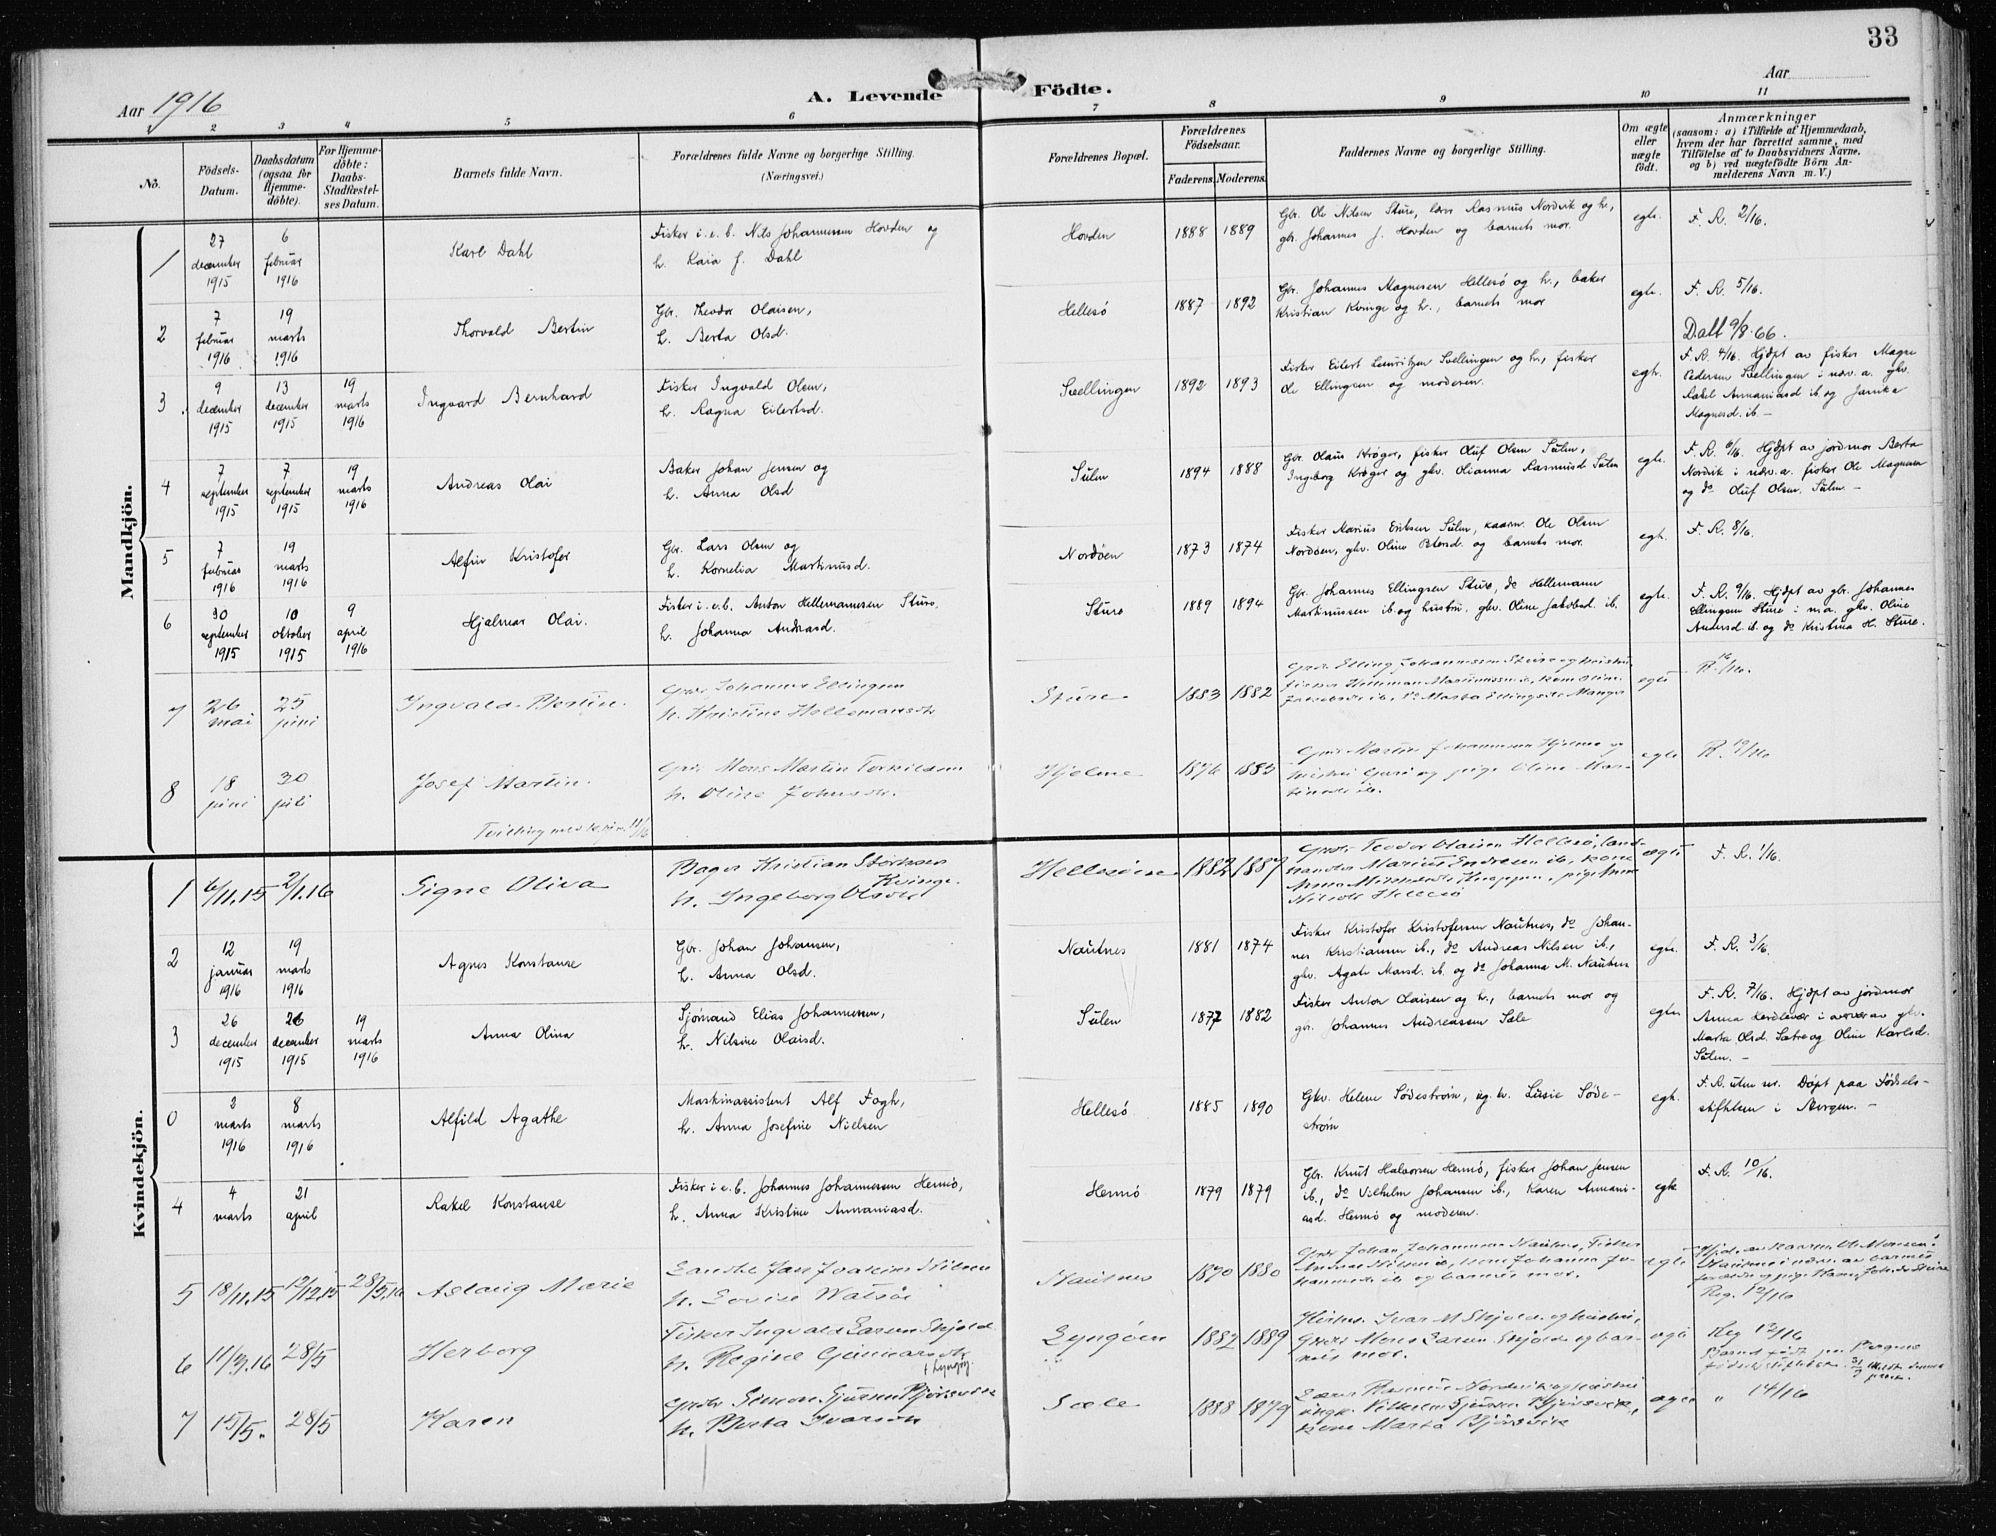 33
Aar 1916
A. Levende Födte.
Aar
2 3 4 5 6 7 8 9 10 11
No.
Födsels-Datum.
Daabsdatum (ogsaa for Hjemmedöbte).
For Hjemmedöbte: Daabs-Stadfæstelses Datum.
Barnets fulde Navn.
Forældrenes fulde Navne og borgerlige Stilling.
(Næringsvei.)
Forældrenes Bopæl.
Forældrenes Födselsaar.
Faderens. Moderens.
Faddernes Navne og borgerlige Stilling.
Om ægte eller uægte födt.
Anmærkninger
(saasom: a) i Tilfælde af Hjemmedaab, hvem der har forrettet samme, med Tilföielse af to Daabsvidners Navne, og b) ved uægtefödte Börn Anmelderens Navn m. V.)
Mandkjön.
1 27 december 1915 6 februar 1916 Karl Dahl
Fisker i. e. b. Nils Johannessen Hovden og
h. Kaia J. Dahl
Hovden 1888 1889
Gbr. Ole Nilsen Sture, lærer Rasmus Nordvik og h.,
gbr. Johannes J. Hovden og barnets mor.
egte. F. R. 2/16.
2 7 februar 1916 19 marts 1916 Thorvald Bertin
Gbr. Theodor Olaisen,
h. Berta Olsd.
Hellesö 1887 1892
Gbr. Johannes Magnesen Hellesö og h., baker
Kristian Kvinge og h., barnets mor
egte. F. R. 5/16.
Datt 9/8.66.
3 9 december 1915 13 december 1915 19 marts 1916 Ingvard Bernhard
Fisker Ingvald Olsen,
h. Ragna Eilertsd.
Svellingen 1892 1893
Fisker Eilert Lauritzen Svellingen og h., fisker
Ole Ellingsen og moderen.
egte.
F. R. 4/16. Hjdpt av fisker Magne
Pedersen Svellingen i nærv. a. gkv.
Rakel Annaniasd ib. og Jenika
Magnesd. ib. —
4 7 september 1915 7 september 1915 19 marts 1916 Andreas Olai
Baker Johan Jensen og
h. Anna Olsd
Sulen 1894 1888
Gbr. Olaus Kröger, fisker Oluf Olsen Sulen,
Ingeborg Kröger og gkv. Olianna Rasmusd Sulen
egte.
F. R. 6/16. Hjdpt av jordmor Berta
Nordvik i nærv. a. fisker Ole Magnesen
og do Oluf Olsen Sulen. —
5 7 februar 1916 19 marts 1916 Alfin Kristofer
Gbr. Lars Olsen og
h. Kornelia Markmusd.
Nordöen 1873 1874
Fisker Marius Eriksen Sulen, kaarm. Ole Olsen
Nordöen, gkv. Oline Petersd. og barnets mor.
egte. F. R. 8/16.
6 30 september 1915 10 oktober 1915 9 april 1916 Hjalmar Olai.
Fisker i. e. b. Anton Hellemannsen Sture,
h. Johanna Andreasd.
Sture 1889 1894
Gbr. Johannes Ellingsen Sture, do Hellemann
Markmussen ib. og hustru, gkv. Oline Jakobsd. ib.
egte.
F. R. 9/16. Hjdpt av gbr. Johannes
Ellingsen Sture i n.a. gkv. Oline
Andersd. ib. og do Kristina H. Sture.
7 26 mai 25 juni Ingvald Bertin.
Gbr. Johannes Ellingsen
h. Kristine Hellemansdtr
Sture 1883 1882
egte
8 18 juni 30 juli Josef Martin.
Gbr. Mons Martin Torkildsen
h. Oline Johnsdtr.
Hjelme 1876 1883
egte
Tvilling med
Kvindekjön.
1 6/11.15 2/1.16 Signe Oliva
Bager Kristian Störksen
Kvinge.
h. Ingeborg Olsdtr
Hellesöen 1882 1887
Gbr. Teodor Olaisen Hellesö, landhandler Marius Endresen ib., kone
ægte F. R. 1/16.
2 12 januar 1916 19 marts 1916 Agnes Konstanse
Gbr. Johan Johansen,
h. Anna Olsd.
Nautnes 1881 1874
Fisker Kristofer Kristofersen Nautnes, do Johannes Kristiansen ib., do Andreas Nilsen ib.,
gkv. Agate Monsd. ib. og do Johanna M. Nautnes
egte. F. R. 3/16.
3 26 december 1915 26 december 1915 19 marts 1916 Anna Olina
Sjömand Elias Johannessen,
h. Nilsine Olaisd.
Sulen 1877 1882
Fisker Anton Olaisen og h., barnets mor og
gbr. Johannes Andreassen Sæle
egte.
F. R. 7/16. Hjdpt av jordmor
Anna i nærvær av gkv.
Marta Olsd. Sætre og Oline Karlsd.
Sulen. —
0 2 marts 1916 8 marts 1916 Alfild Agathe
Maskinassistent Alf Fogh,
h. Anna Josefine Nielsen
Hellesö 1885 1890
Gkv. Helene Södeström, ug. kv. Lusie Södeström
egte.
F. R. uten nr. Döpt paa Fødselsstiftelsen i Bergen. —
4 4 marts 21 april Rakel Konstanse
Fisker i e. b. Johannes Johannessen Hernö,
h. Anna Kristine Annaniasd.
Hernö 1879 1879
Gbr. Knut Halvorsen Hernö, fisker Johan Jensen
ib., do Vilhelm Johansen ib., Karen Annaniasd. Hernö og moderen.
egte. F. R. 10/16.
5 18/11.15 12/12.15 28/5.16 Aslaug Marie
Jan Joakim Nilsen
h. Lovise
Nautnes 1890 1880
egte
Reg. 12/16
6 11/3.16 28/5 Herborg
Fisker Ingvald Larsen Skjold
h. Regine Gunnarsdtr
Lyngöen 1882 1889
Ivar M Skjold og hustru,
Gbr. Mons Larsen Skjold og barnets mor.
egte
Reg 13/16
7 15/5. 28/5 Karen
Gbr. Simon Sjursen Björsvik
h. Berta Ivarson
Sæle 1888 1879
Lærer Rasmus Nordvik og hustru
ungk. Vilhelm Sjursen Björsvik,
kone Marta Björsvik
ægte " 14/16